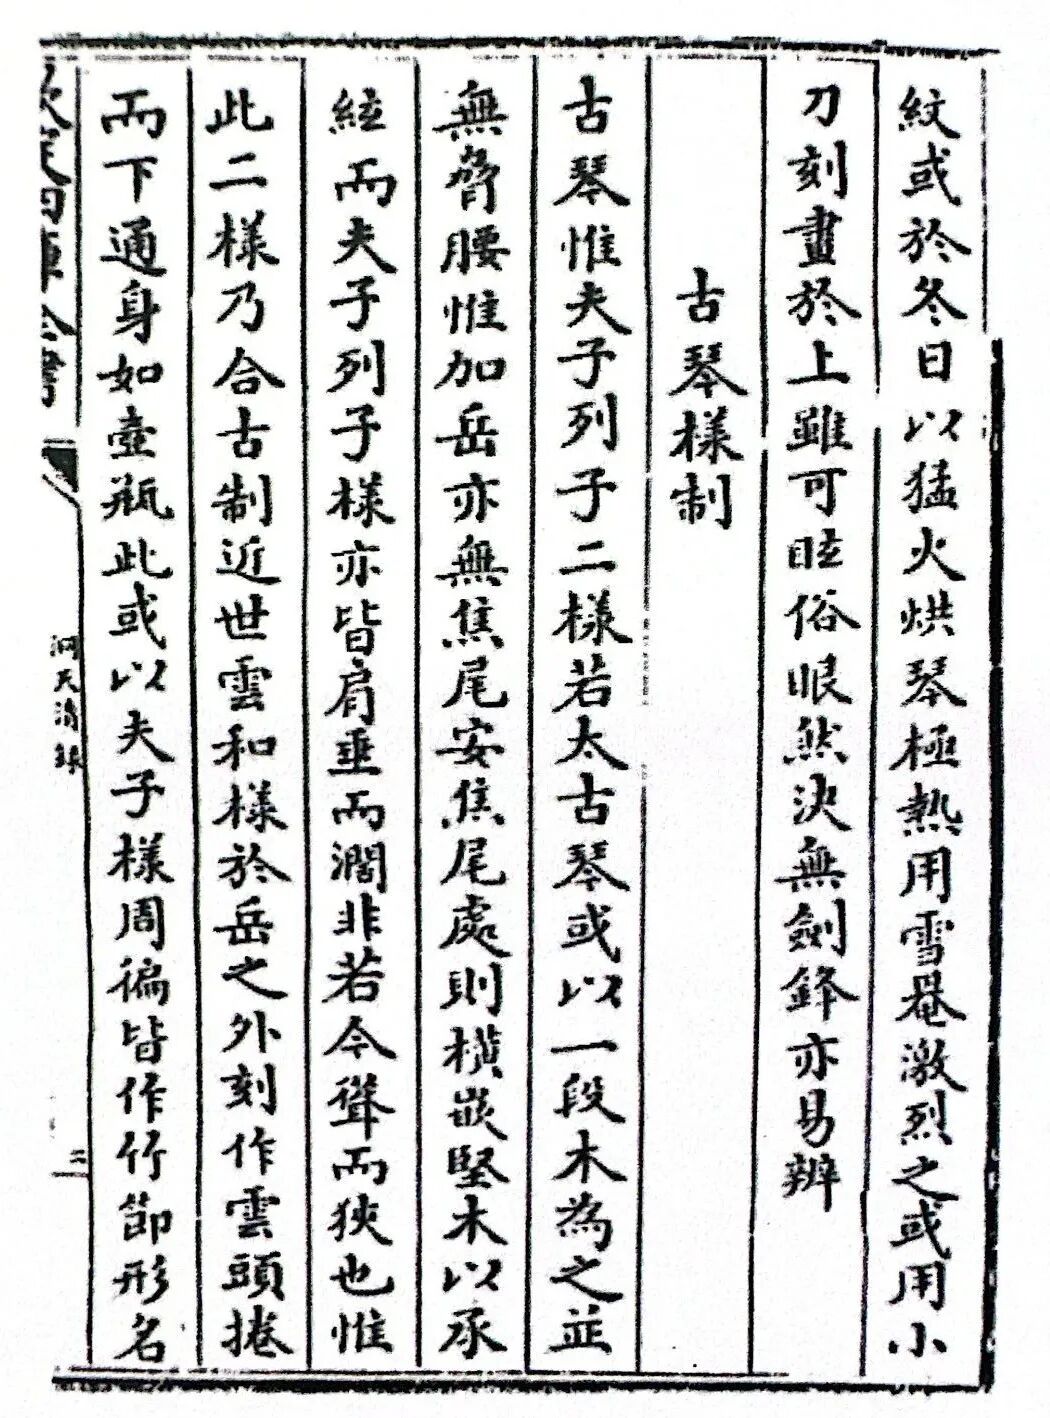 紋或於冬日以猛火烘琴極熱用雪罨激烈之或用小
刀刻畫於上雖可眩俗眼然決無劍鋒亦易辨
古琴樣制
古琴惟夫子列子二樣若太古琴或以一段木為之並
無脅腰惟加岳亦無焦尾安焦尾處則横嵌堅木以承
絃而夫子列子樣亦皆肩垂而濶非若今聳而狹也惟
此二樣乃合古制近世雲和樣於岳之外刻作雲頭捲
而下通身如壺瓶此或以夫子樣周徧皆作竹節形名
欽定四庫全書
洞天清録
二